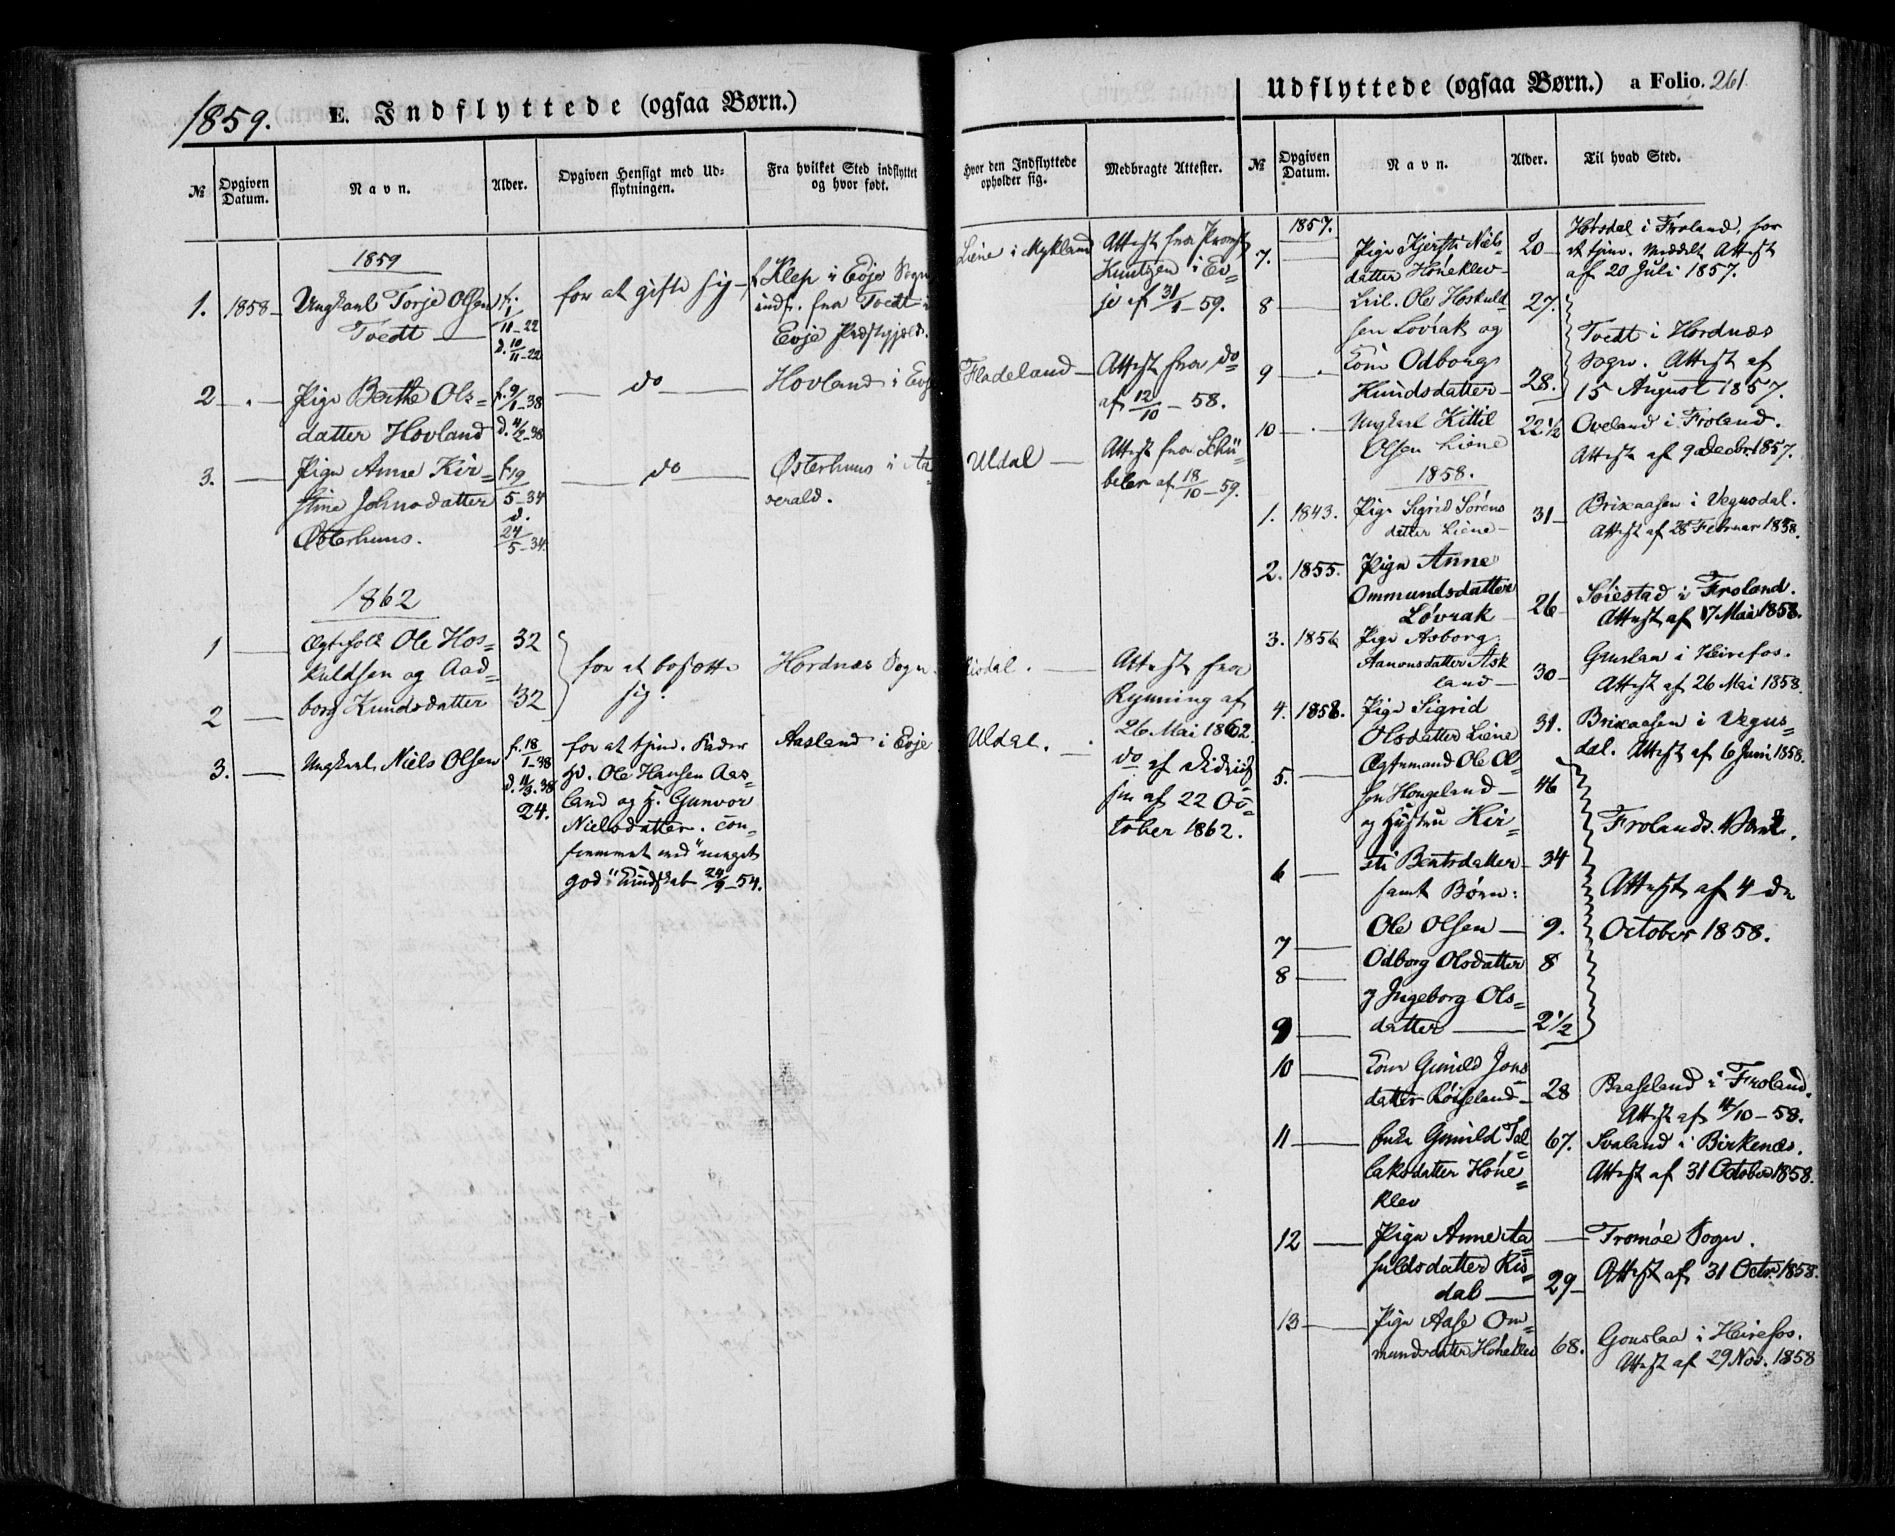 1859. E. Indflyttede (ogsaa Børn.)
№
Opgiven Datum.
Navn.
Alder.
Opgiven Hensigt med Ud-
flytningen.
Fra hvilket Sted indflyttet
og hvor født.
Hvor den Indflyttede
opholder sig.
Medbragte Attester.
1859
1. 1858 Ungkarl Torje Olsen
Tvedt
f. 1/11-22
d. 10/11-22
for at gifte sig
Klep i Evje Sogn
indf. fra Tvedt i
Evje Præstgjeld.
Liene i Mykland
Attest fra Provst
Knutzen i Ev=
je af 31/1-59.
2 Pige Berthe Ols=
datter Hovland
f. 9/1-38
d. 11/2-38
do
Hovland i Evje
Fladeland
Attest fra do
af 12/10-58.
3. Pige Anne Kir=
stine Johnsdatter
Østerhuus.
f. 19/5-34
d. 24/5-34.
do
Østerhuus i Aa=
serald.
Uldal
Attest fra Schü=
beler af 18/10-59.
1862
1 Ægtefolk Ole Hos= 32
kuldsen og Aad=
2 borg Knudsdatter 32
for at bosætte
sig.
Hordnæs Sogn
Risdal.
Attest fra
Rynning af
26 Mai 1862.
3. Ungkarl Niels Olsen
f. 18/1-38
d. 11/3.38
24.
for at tjene. Fader
Gd. Ole Hansen Aas=
land og H. Gunvor
Nielsdatter. Con=
firmeret med "meget
god" Kundskab 24/9-54.
Aasland i Evje
Uldal.
do af Didrich=
sen af 22 Oc=
tober 1862.
Udflyttede (ogsaa Børn.) a Folio. 261
№
Opgiven Datum.
Navn.
Alder.
Til hvad Sted.
1857.
7. Pige Kjersti Niels
datter Høneklev
20
Hørsdal i Froland, for
at tjene. Meddelt Attest
af 20 Juli 1857.
8 Leil. Ole Hoskuld 27.
sen Løvrak og
9 Kone Odborg
Knudsdatter 28.
Tvedt i Hordnæs
Sogn. Attest af
15 August 1857.
10 Ungkarl Kittil 22 1/2
Olsen Liene
Oveland i Froland.
Attest af 9 Decbr 1857.
1858.
1. 1843. Pige Sigrid Sørens
datter Liene
31
Brixaasen i Vegusdal.
Attest af 28 Februar 1858.
2. 1855. Pige Anne
Ommundsdatter
Løvrak
26
Søiestad i Froland.
Attest af 17 Mai 1858.
3. 1856 Pige Asborg
Aanonsdatter Ask
land
30
Gauslaa i Heirefos.
Attest af 26 Mai 1858.
4. 1858. Pige Sigrid
Olsdatter Liene
31.
Brixaasen i Vegus=
dal. Attest af 6 Juni 1858.
5. Ægtemand Ole Ol=
sen Hongeland 46
og Hustru Kir=
6 sti Bentsdatter 34
samt Børn:
7 Ole Olsen 9.
8 Odborg Olsdatter 8
og Ingeborg Ols=
9 datter 2 1/2
Frolands Værk.
Attest af 4 de
October 1858.
10 Kone Gunild Jons
datter Røiseland
28
Baaseland i Froland.
Attest af 4/10-58.
11 Enke Gunild Tal=
laksdatter Høne=
klev
67.
Svaland i Birkenæs.
Attest af 31 October 1858.
12 Pige Anne Aa=
suldsdatter Ris=
dal
29
Tromøe Sogn.
Attest af 31 Octr. 1858.
13 Pige Aase Om=
mundsdatter Høneklev
68.
Gouslaa i Heirefos.
Attest af 29 Nov. 1858